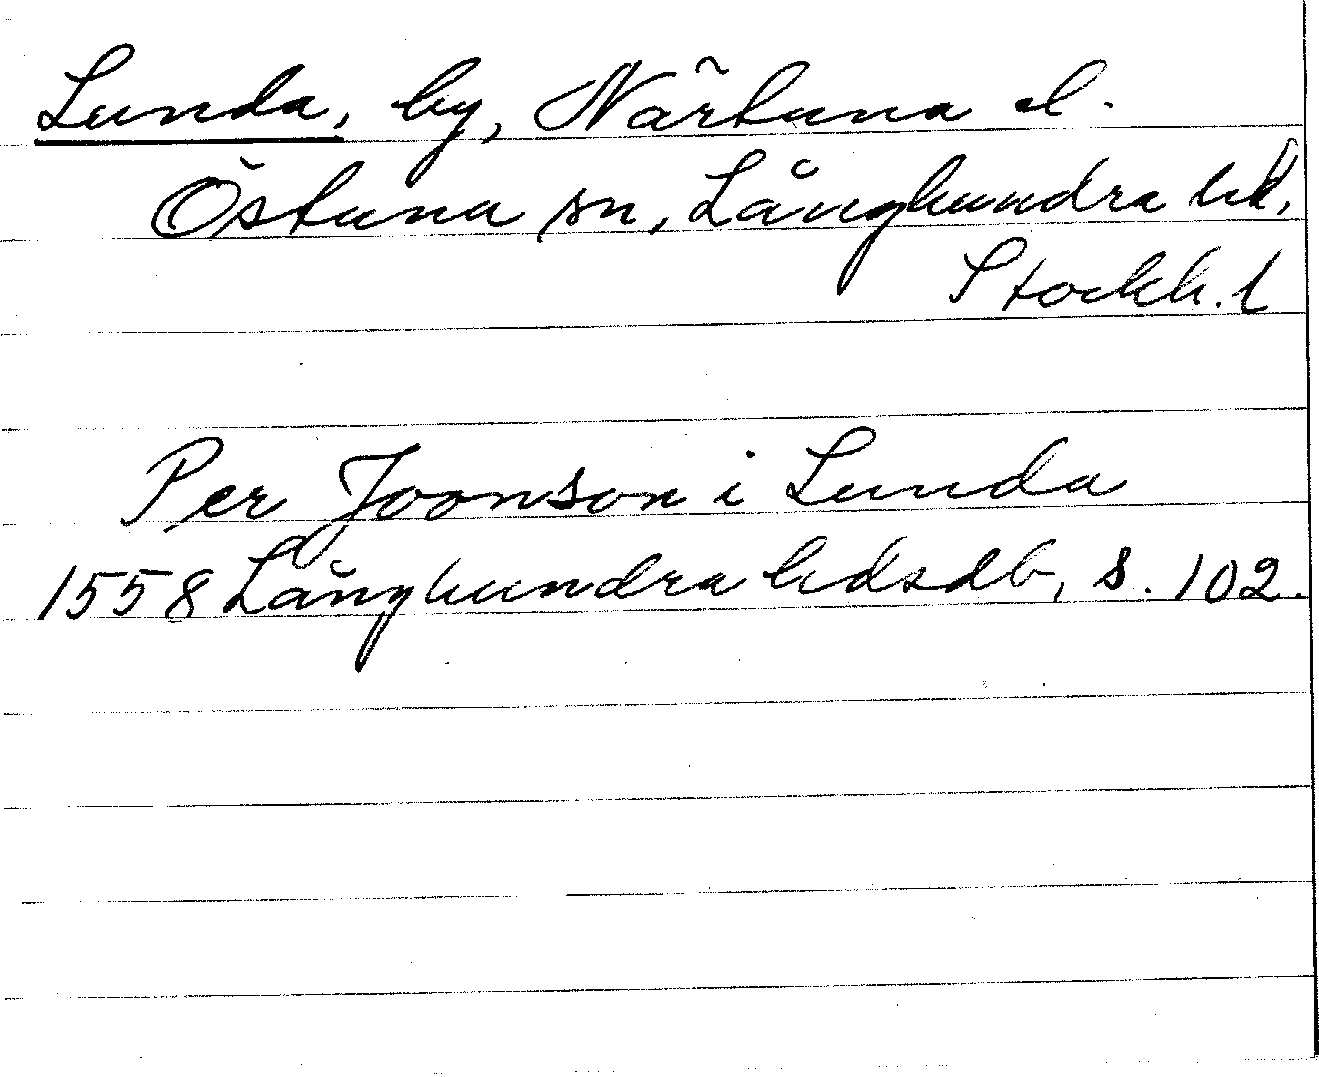 Lunda, by, Närtuna el.
Östuna sn, Långhundra hd,
Stockh. l
Per Joonson i Lunda
1558 Långhundra hdsdb, s. 102.